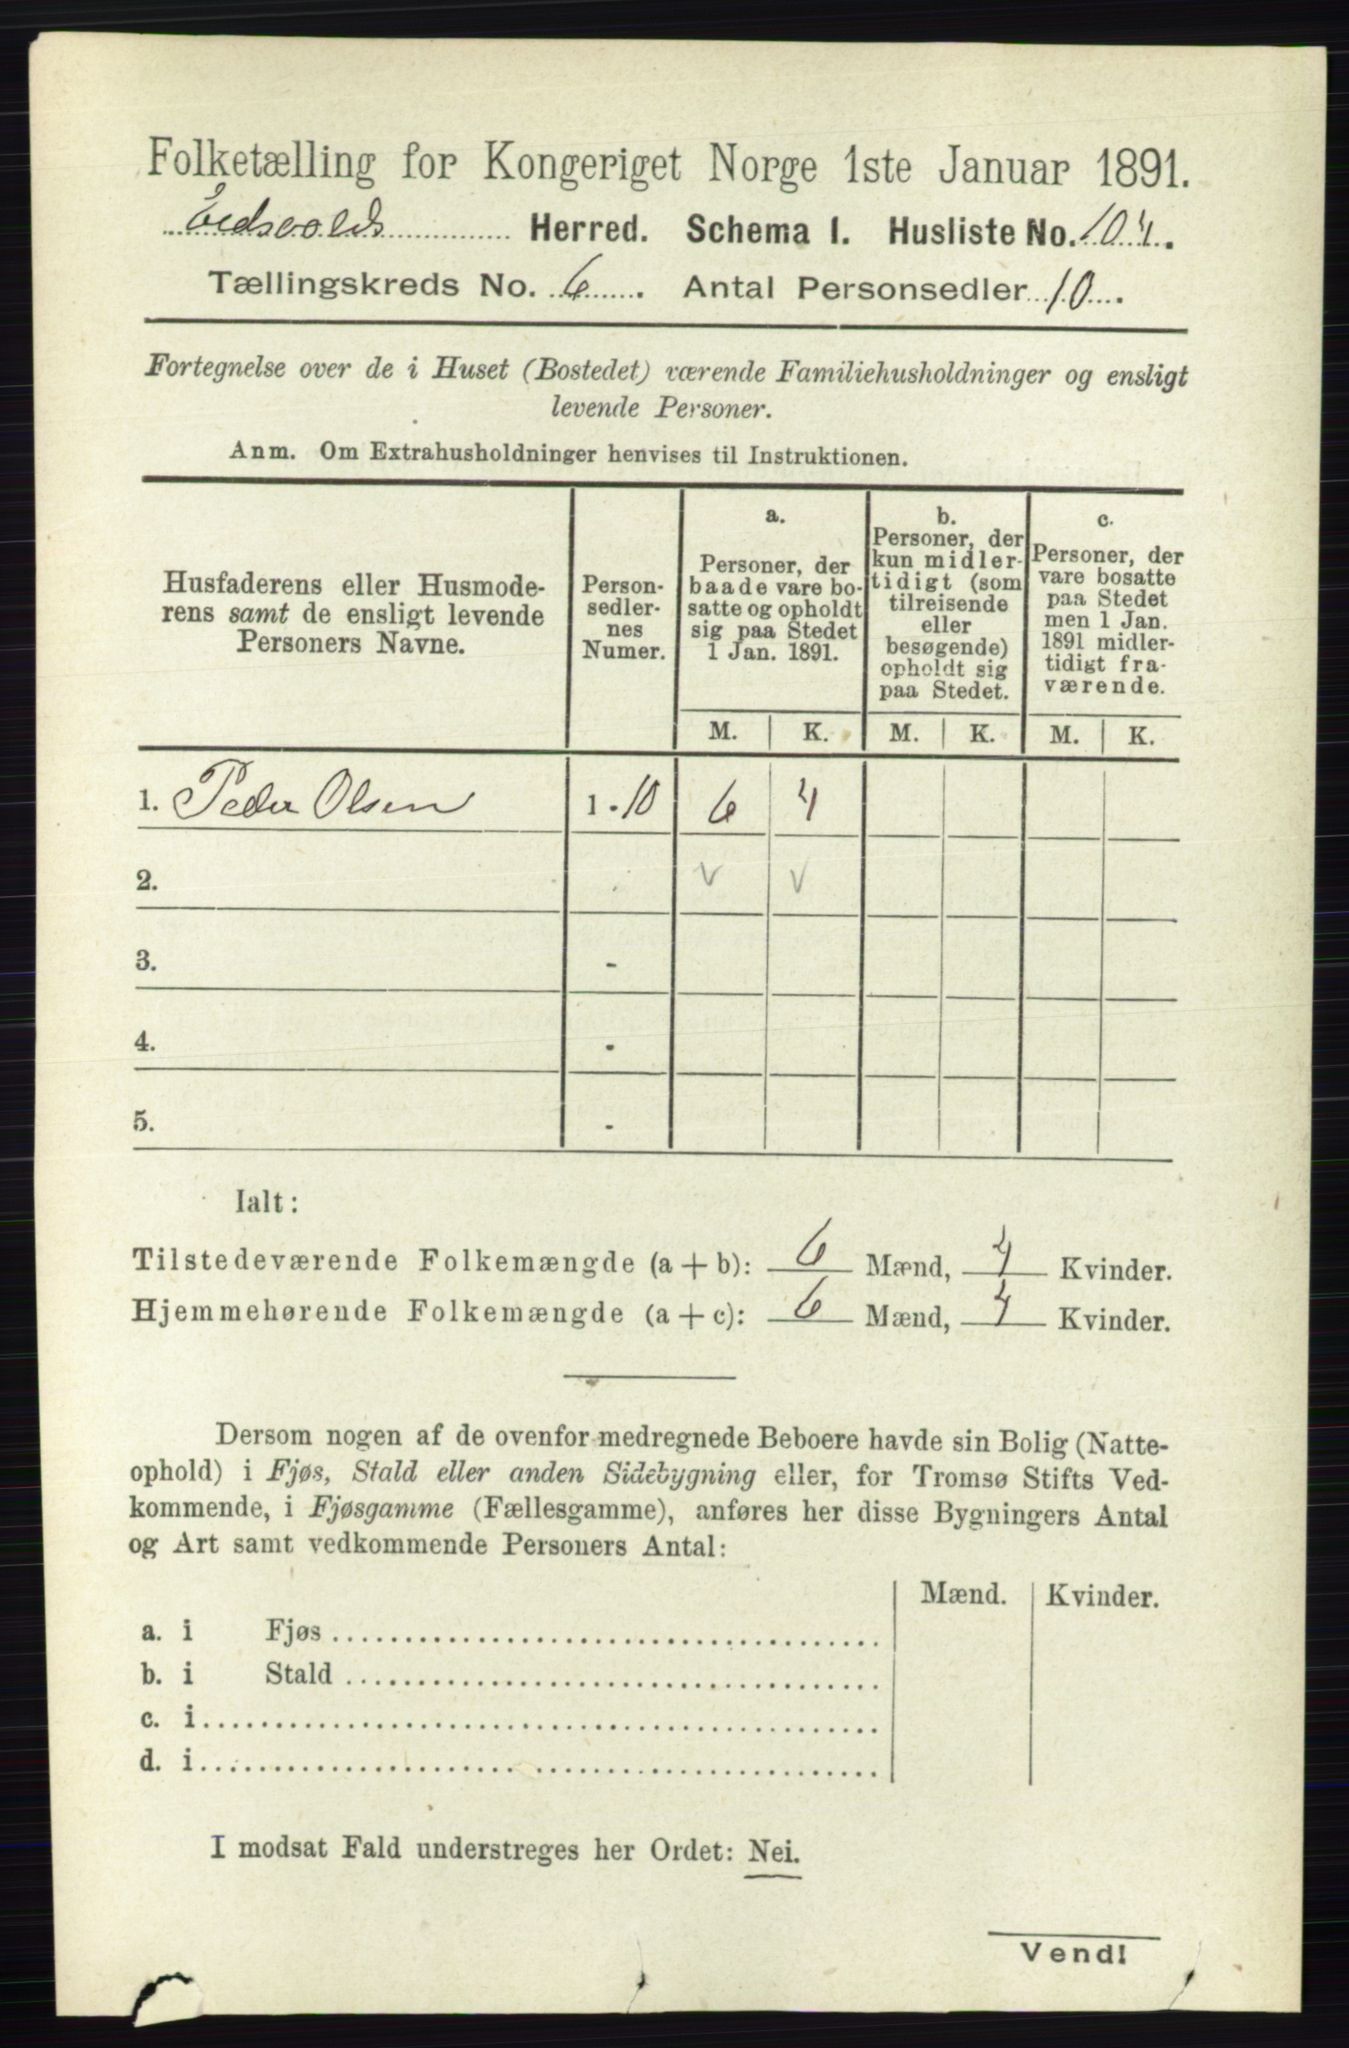 Folketælling for Kongeriget Norge 1ste Januar 1891.
Eidsvolds Herred. Schema I. Husliste No. 104.
Tællingskreds No. 6. Antal Personsedler 10.
Fortegnelse over de i Huset (Bostedet) værende Familiehusholdninger og ensligt
levende Personer.
Anm. Om Extrahusholdninger henvises til Instruktionen.
Husfaderens eller Husmode-
rens samt de ensligt levende
Personers Navne.
Person-
sedler-
nes
Numer.
a.
Personer, der
baade vare bo-
satte og opholdt
sig paa Stedet
1 Jan. 1891.
b.
Personer, der
kun midler-
tidigt (som
tilreisende
eller
besøgende)
opholdt sig
paa Stedet.
c.
Personer, der
vare bosatte
paa Stedet
men 1 Jan.
1891 midler-
tidigt fra-
værende.
M. K. M. K. M. K.
1. Peder Olsen 1 - 10 6 4
2. - v v
3. -
4. -
5. -
Ialt:
Tilstedeværende Folkemængde (a + b): 6 Mænd, 4 Kvinder.
Hjemmehørende Folkemængde (a + c): 6 Mænd, 4 Kvinder.
Dersom nogen af de ovenfor medregnede Beboere havde sin Bolig (Natte-
ophold) i Fjøs, Stald eller anden Sidebygning eller, for Tromsø Stifts Ved-
kommende, i Fjøsgamme (Fællesgamme), anføres her disse Bygningers Antal
og Art samt vedkommende Personers Antal:
Mænd. Kvinder.
a. i Fjøs
b. i Stald
c. i
d. i
I modsat Fald understreges her Ordet: Nei.
Vend!